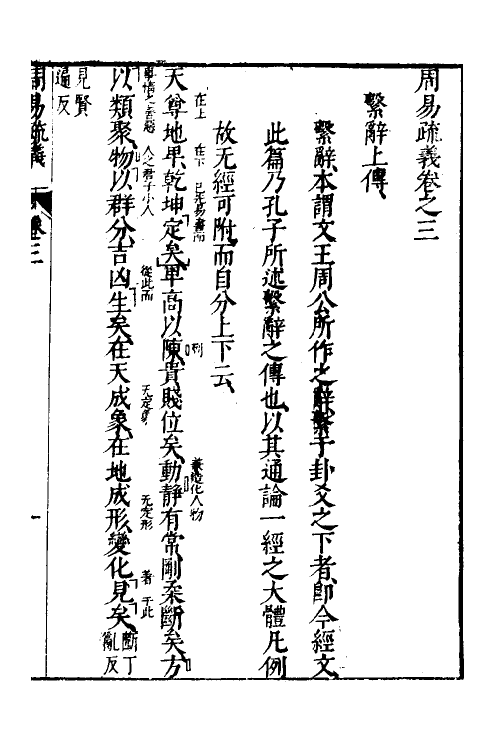 周易疏義卷之三
繫辭上傳
繫辭本謂文王周公所作之辭繫于卦爻之下者即今經文
此篇乃孔子所述繫辭之傳也以其通論一經之大體凡例
故无經可附而自分上下云
在上 在下 已先易畫而 列 兼造化人物
天尊地卑乾坤定矣卑高以陳貴賤位矣動靜有常剛柔斷矣方
事情之善惡 人之君子小人 從此而 无定象 无定形 著于此
以類聚物以群分吉凶生矣在天成象在地成形變化見矣 斷丁亂反
見賢遍反
周易疏義 卷三 一